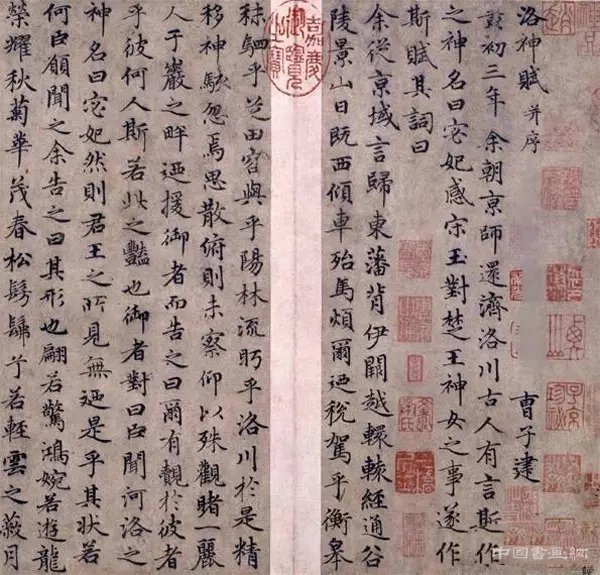 洛神賦 并序
曹子建
初三年余朝京師還濟洛川古人有言斯水
之神名曰宓妃感宋玉對楚王神女之事遂作
斯賦其詞曰
余從京域言歸東藩背伊闕越轘轅經通谷
陵景山日既西傾車殆馬煩爾迺稅駕乎衡皋
秣駟乎芝田容與乎陽林流眄乎洛川於是精
移神駭忽焉思散俯則未察仰以殊觀睹一麗
人于巖之畔迺援御者而告之曰爾有覿於彼者
乎彼何人斯若此之豔也御者對曰臣聞河洛之
神名曰宓妃然則君王之所見無迺是乎其狀若
何臣願聞之余告之曰其形也翩若驚鴻婉若遊龍
榮耀秋菊華茂春松髣髴兮若輕雲之蔽月
嘉慶御覽之寶
中国書画網